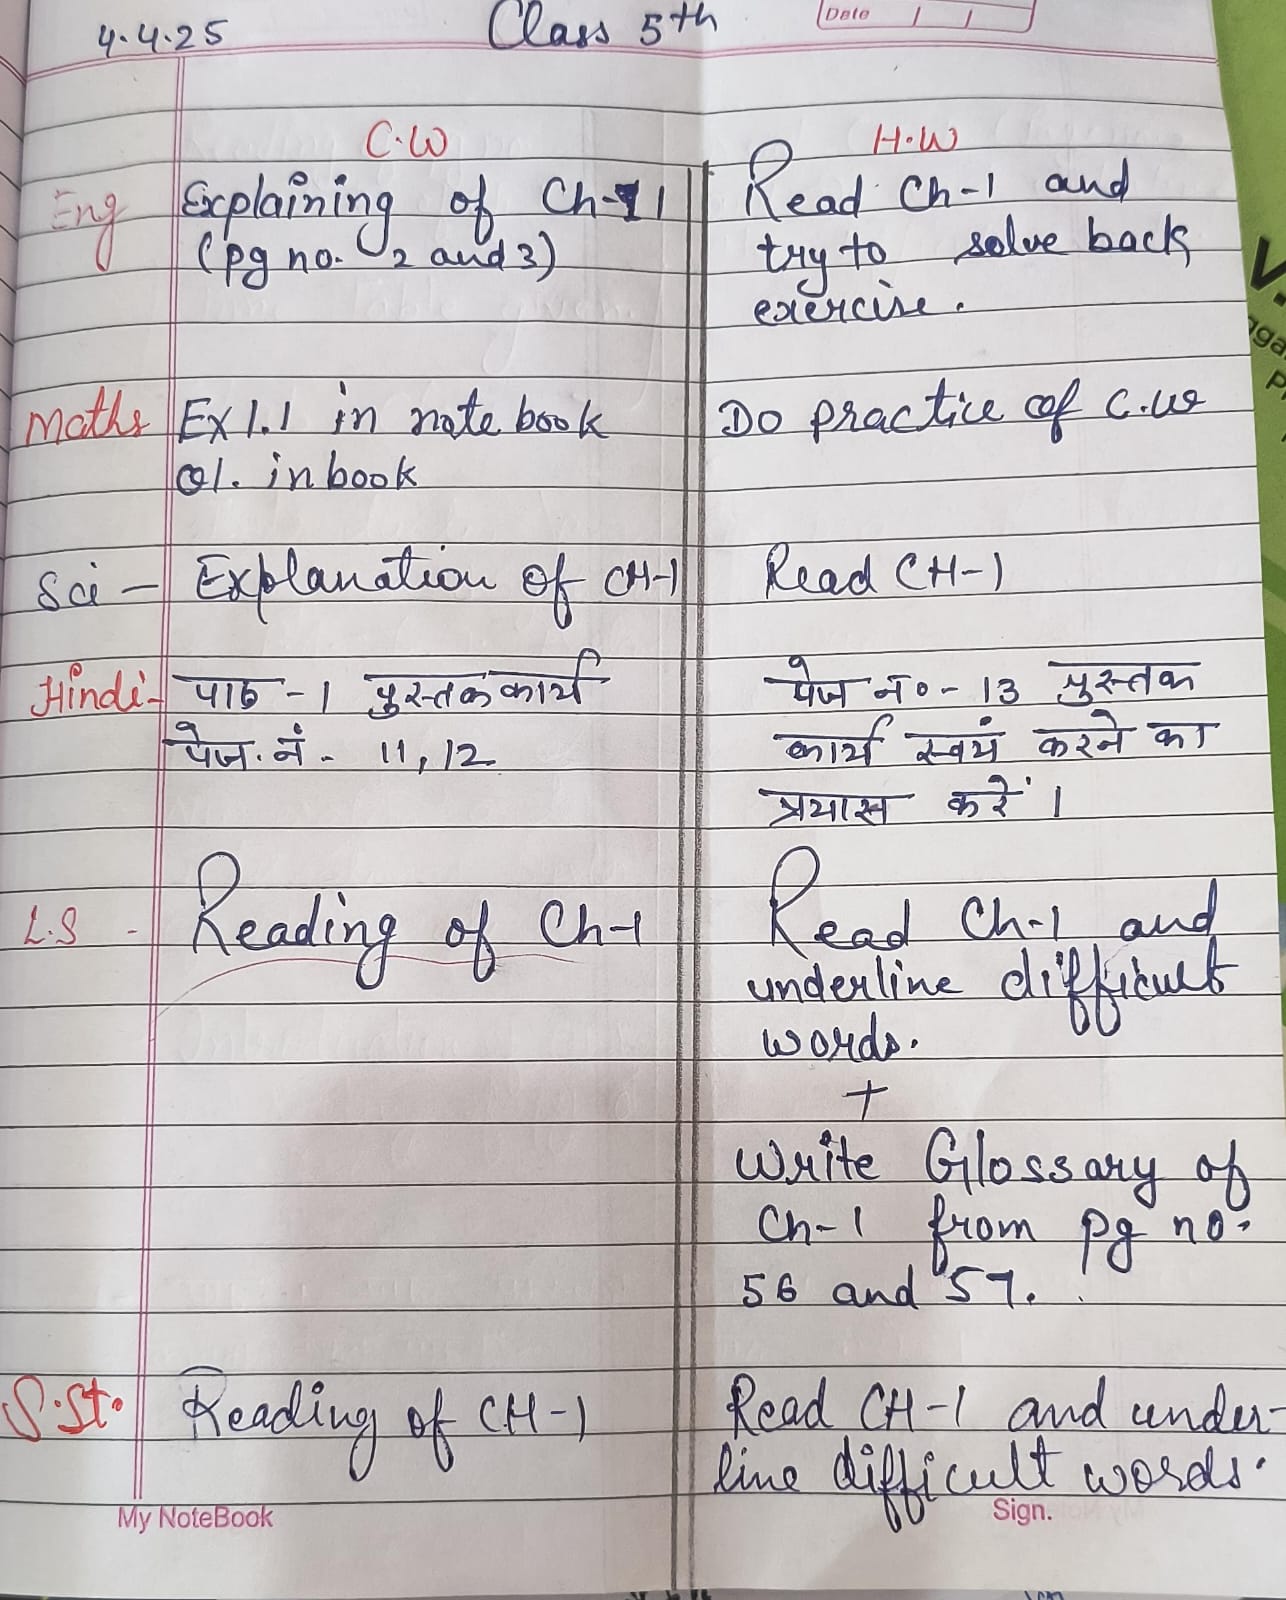 4.4.25 Class 5th Date / /
C.W H.W
Eng Explaining of Ch-1 Read Ch-1 and
(pg no. 2 and 3) try to solve back
exercise.
Maths Ex 1.1 in note book Do practice of C.W
Q1. in book
Sci - Explanation of CH-1 Read CH-1
Hindi- पाठ - 1 पुस्तक कार्य पेज नं० - 13 पुस्तक
पेज. नं - 11, 12 कार्य स्वयं करने का
प्रयास करें ।
L.S - Reading of Ch-1 Read Ch-1 and
underline difficult
words.
+
Write Glossary of
Ch-1 from pg no.
56 and 57.
S.St. Reading of CH-1 Read CH-1 and under-
line difficult words.
My NoteBook Sign.